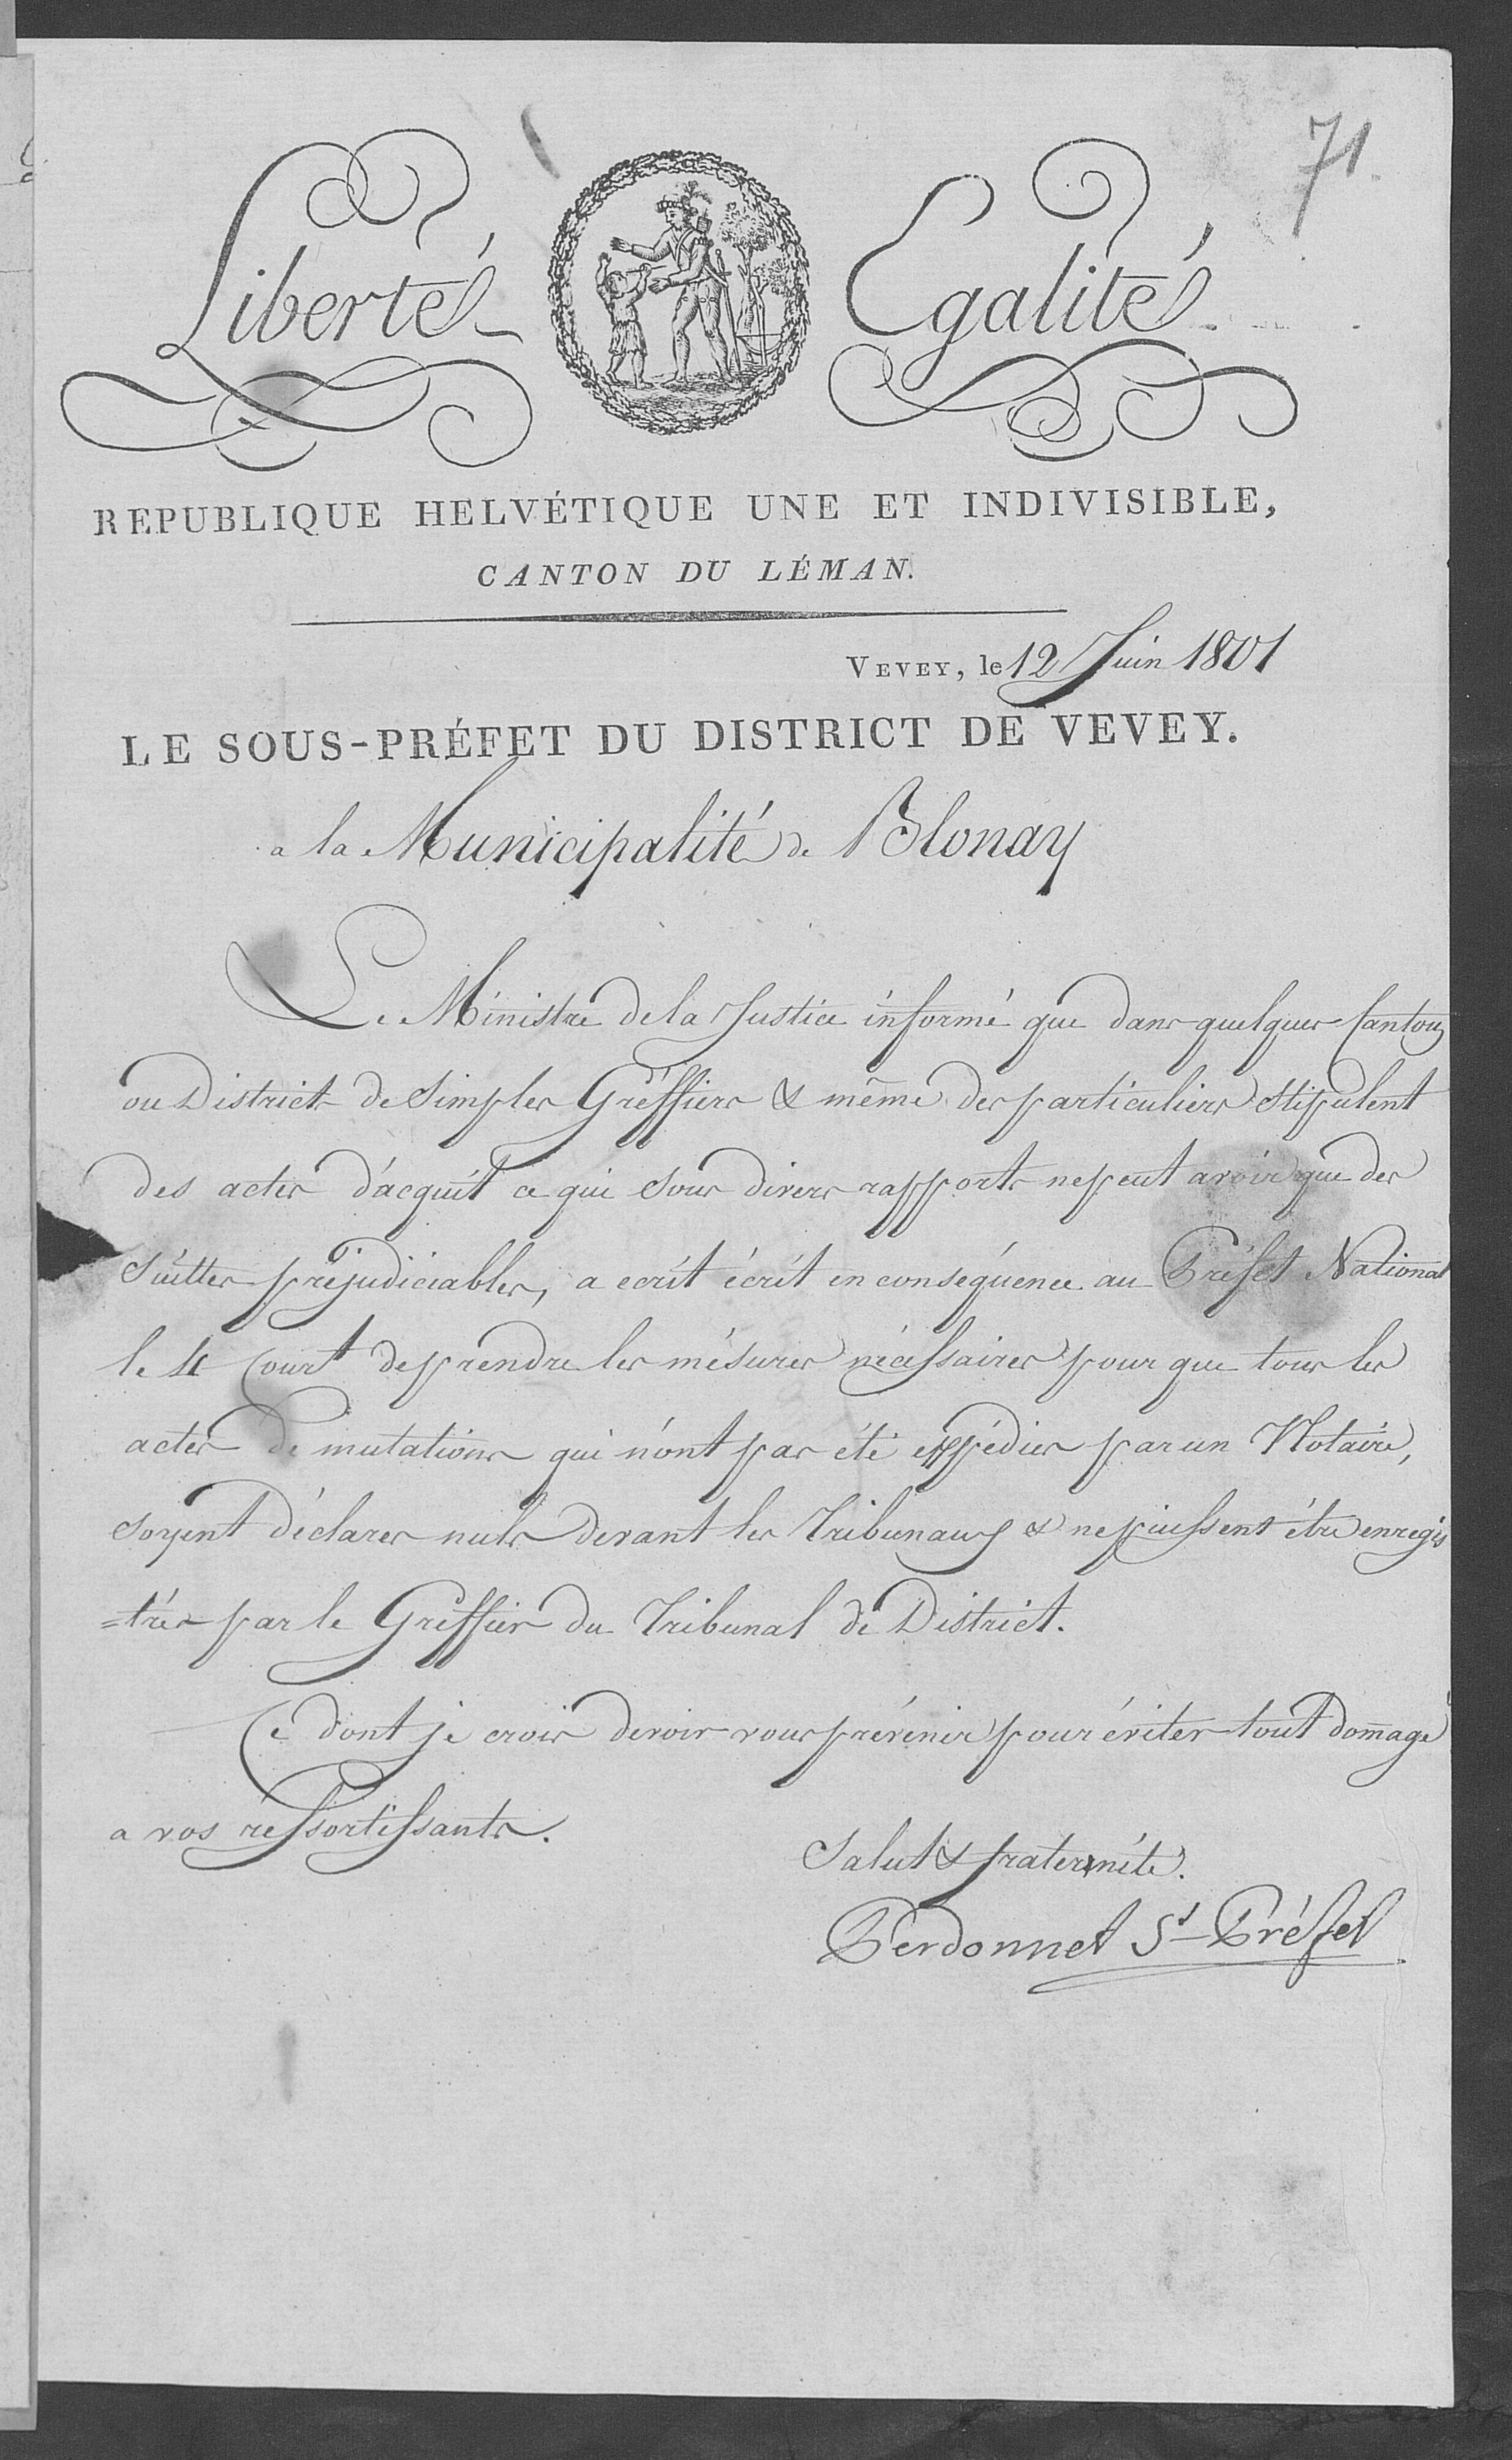 71.
Liberté Egalité
REPUBLIQUE HELVÉTIQUE UNE ET INDIVISIBLE,
CANTON DU LÉMAN.
VEVEY, le 12 Juin 1801
LE SOUS-PRÉFET DU DISTRICT DE VEVEY.
a la Municipalité de Blonay
Le Ministre de la Justice informé que dans quelques Cantons
ou Districts de Simples Gréffiers & même des particuliers stipulent
des actes d'acquit ce qui sous divers rapports ne peut avoir que des
suittes préjudiciables, a ecrit écrit en conséquence au Préfet National
le 4 Court de prendre les mésures nécessaires pour que tous les
actes de mutations qui n'ont pas été expédiés par un Notaire,
soyent déclarés nuls devant les Tribunaux & ne puissent être enregis
=trés par le Gréffier du Tribunal de District.
Ce dont je crois devoir vous prévenir pour éviter tout domage
a vos ressortissants.
Salut & fraternité.
Perdonnet St Préfet